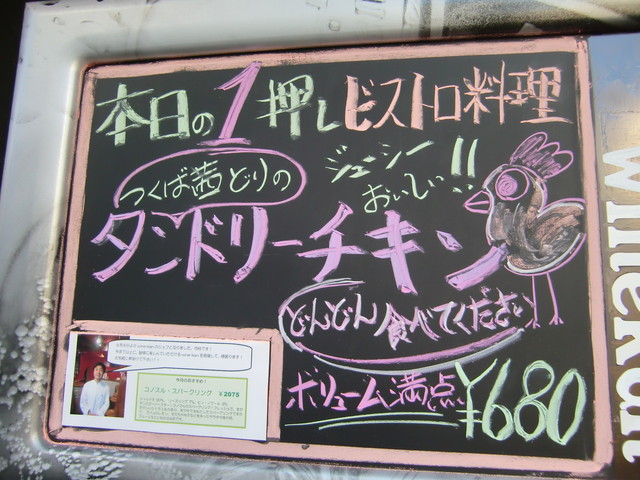 本日の1押しビストロ料理
つくば茜どりの
ジューシー
おいしい!!
タンドリーチキン
どんどん食べてください
ボリューム満点
¥680
今月のおすすめ!
コノスル・スパークリング ¥2075
Winekan